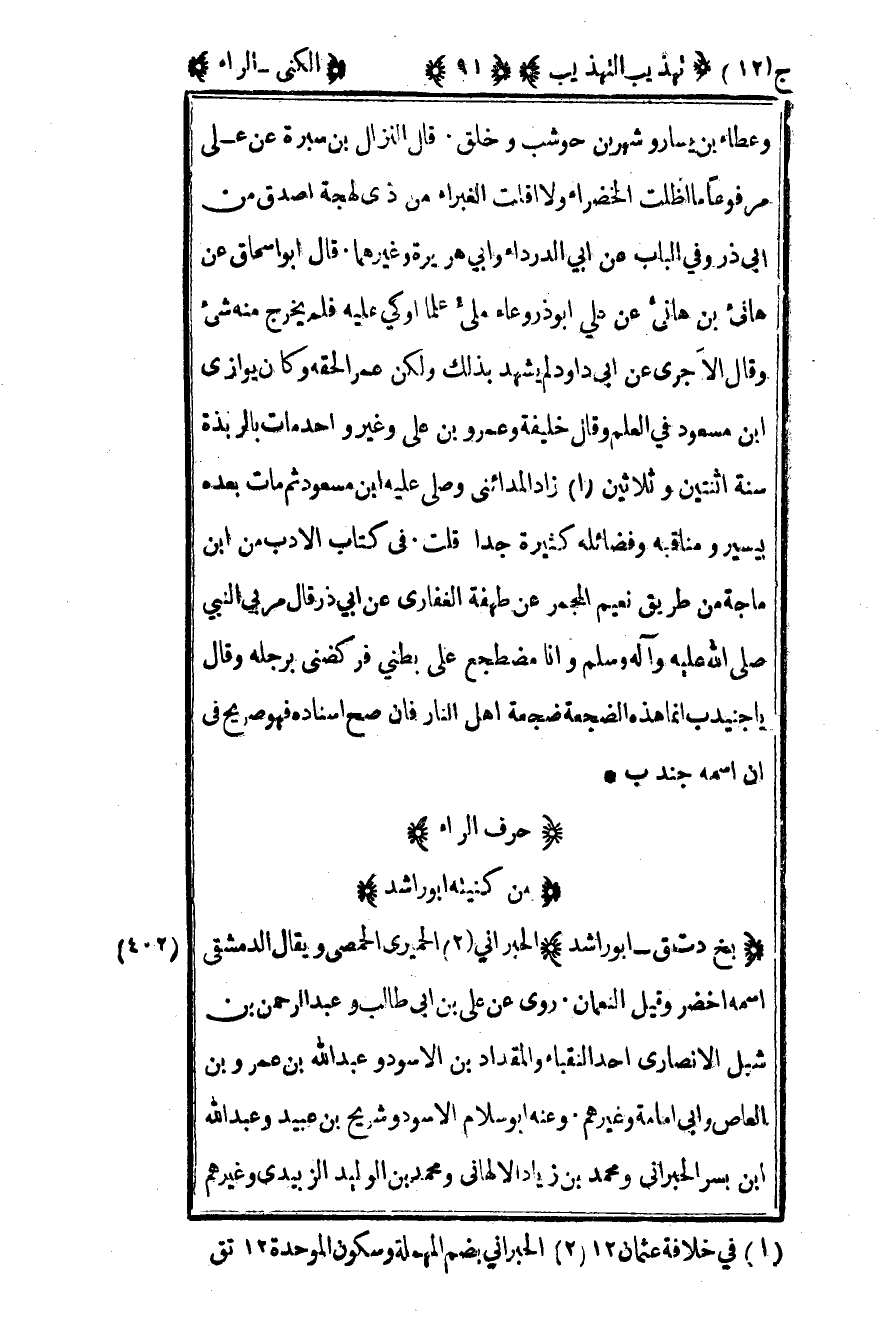 ج(١٢) ﴿ تهذيب التهذيب ﴾ ﴿ ٩١ ﴾ ﴿ الكنى ـ الراء ﴾
وعطاء بن يسار و شهر بن حوشب و خلق · قال النزال بن سبرة عن عـلى
مرفوعًا ما اظلت الخضراء ولا اقلت الغبراء من ذى لهجة اصدق من
ابي ذر وفي الباب عن ابي الدرداء وابي هريرة وغيرهما · قال ابو اسحاق عن
هانئ بن هانئ عن علي ابوذر وعاء ملئ علما اوكي عليه فلم يخرج منه شئ
وقال الآجرى عن ابى داود لم يشهد بذلك ولكن عمر الحقه وكان يوازى
ابن مسعود في العلم وقال خليفة وعمرو بن على وغير و احد مات بالربذة
سنة اثنتين و ثلاثين (١) زاد المدائنى وصلى عليه ابن مسعود ثم مات بعده
بيسير و مناقبه وفضائله كثيرة جدا قلت · فى كتاب الادب من ابن
ماجة من طريق نعيم المجمر عن طهفة الغفارى عن ابي ذر قال مر بي النبي
صلى الله عليه وآله وسلم و انا مضطجع على بطني فركضنى برجله وقال
يا جنيدب انما هذه الضجعة ضجعة اهل النار فان صح اسناده فهو صريح فى
ان اسمه جندب •
﴿ حرف الراء ﴾
﴿ من كنيته ابو راشد ﴾
﴿ بخ دت ق ـ ابو راشد ﴾ الحبراني (٢) الحميرى الحمصى ويقال الدمشقى (٤٠٢)
اسمه اخضر وقيل النعمان · روى عن على بن ابى طالب و عبد الرحمن بن
شبل الانصارى احد النقباء والمقداد بن الاسود و عبد الله بن عمر و بن
العاص وابي امامة وغيرهم · وعنه ابو سلام الاسود وشريح بن عبيد وعبد الله
ابن بسر الحبراني و محمد بن زياد الالهانى و محمد بن الوليد الزبيدى وغيرهم
(١) في خلافة عثمان ١٢ (٢) الحبراني بضم المهملة وسكون الموحدة ١٢ تق